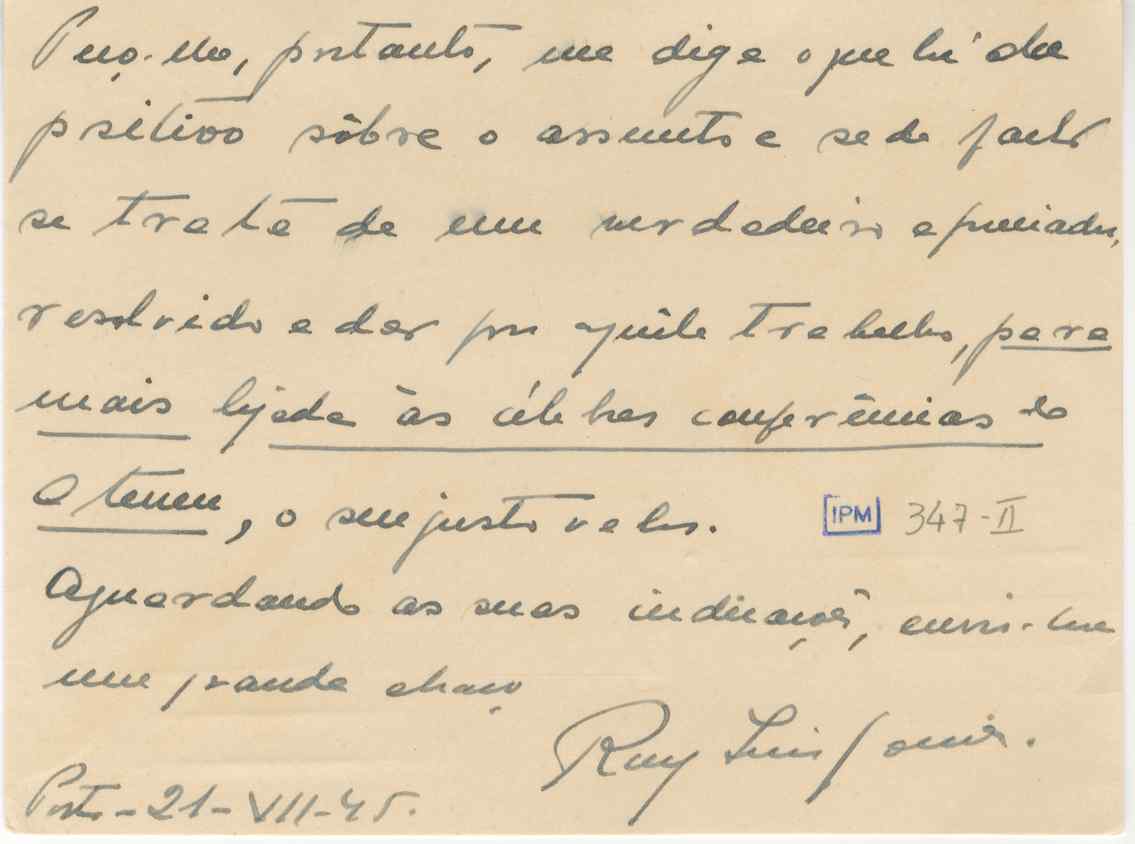 Peço-lhe, portanto, me diga o que há de
positivo sôbre o assunto e se de facto
se trata de um verdadeiro apreciador,
resolvido a dar por aquele trabalho, para
mais ligada às célebres conferências do
Ateneu, o seu justo valor.
IPM 347-II
Aguardando as suas indicações, envio-lhe
um grande abraço
Ruy Luis Gomes.
Porto-21-VII-45.